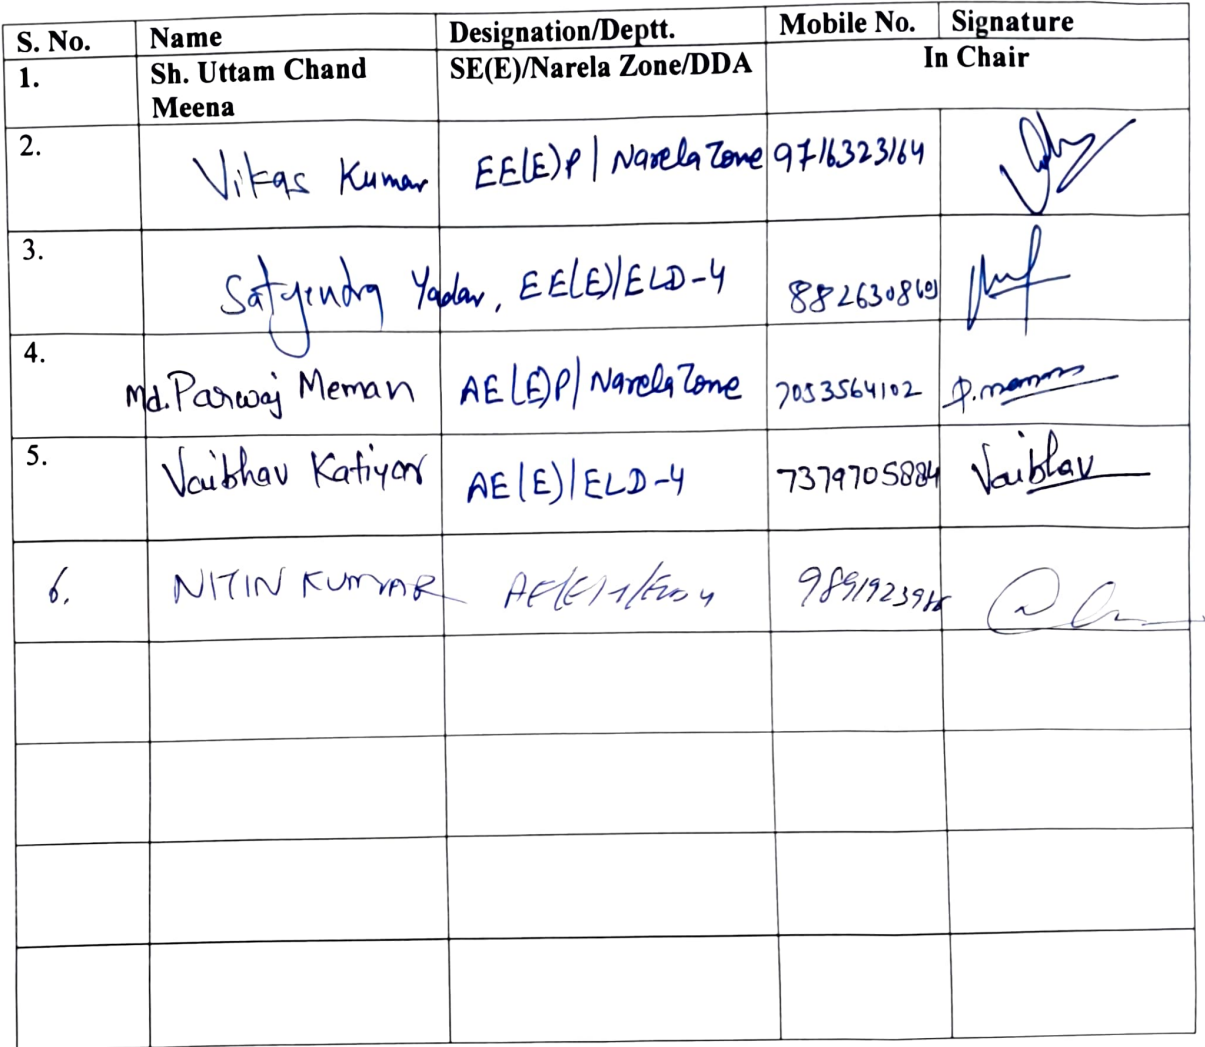 S. No. Name Designation/Deptt. Mobile No. Signature
1. Sh. Uttam Chand Meena SE(E)/Narela Zone/DDA In Chair
2. Vikas Kumar EE(E)P | Narela Zone 9716323164
3. Satyendra Yadav, EE(E)/ELD-4
4. Md. Parwaj Meman AE(E)P/ Narela Zone 7053564102
5. Vaibhav Katiyar AE(E)/ELD-4 7379705884 Vaibhav
6. NITIN KUMAR